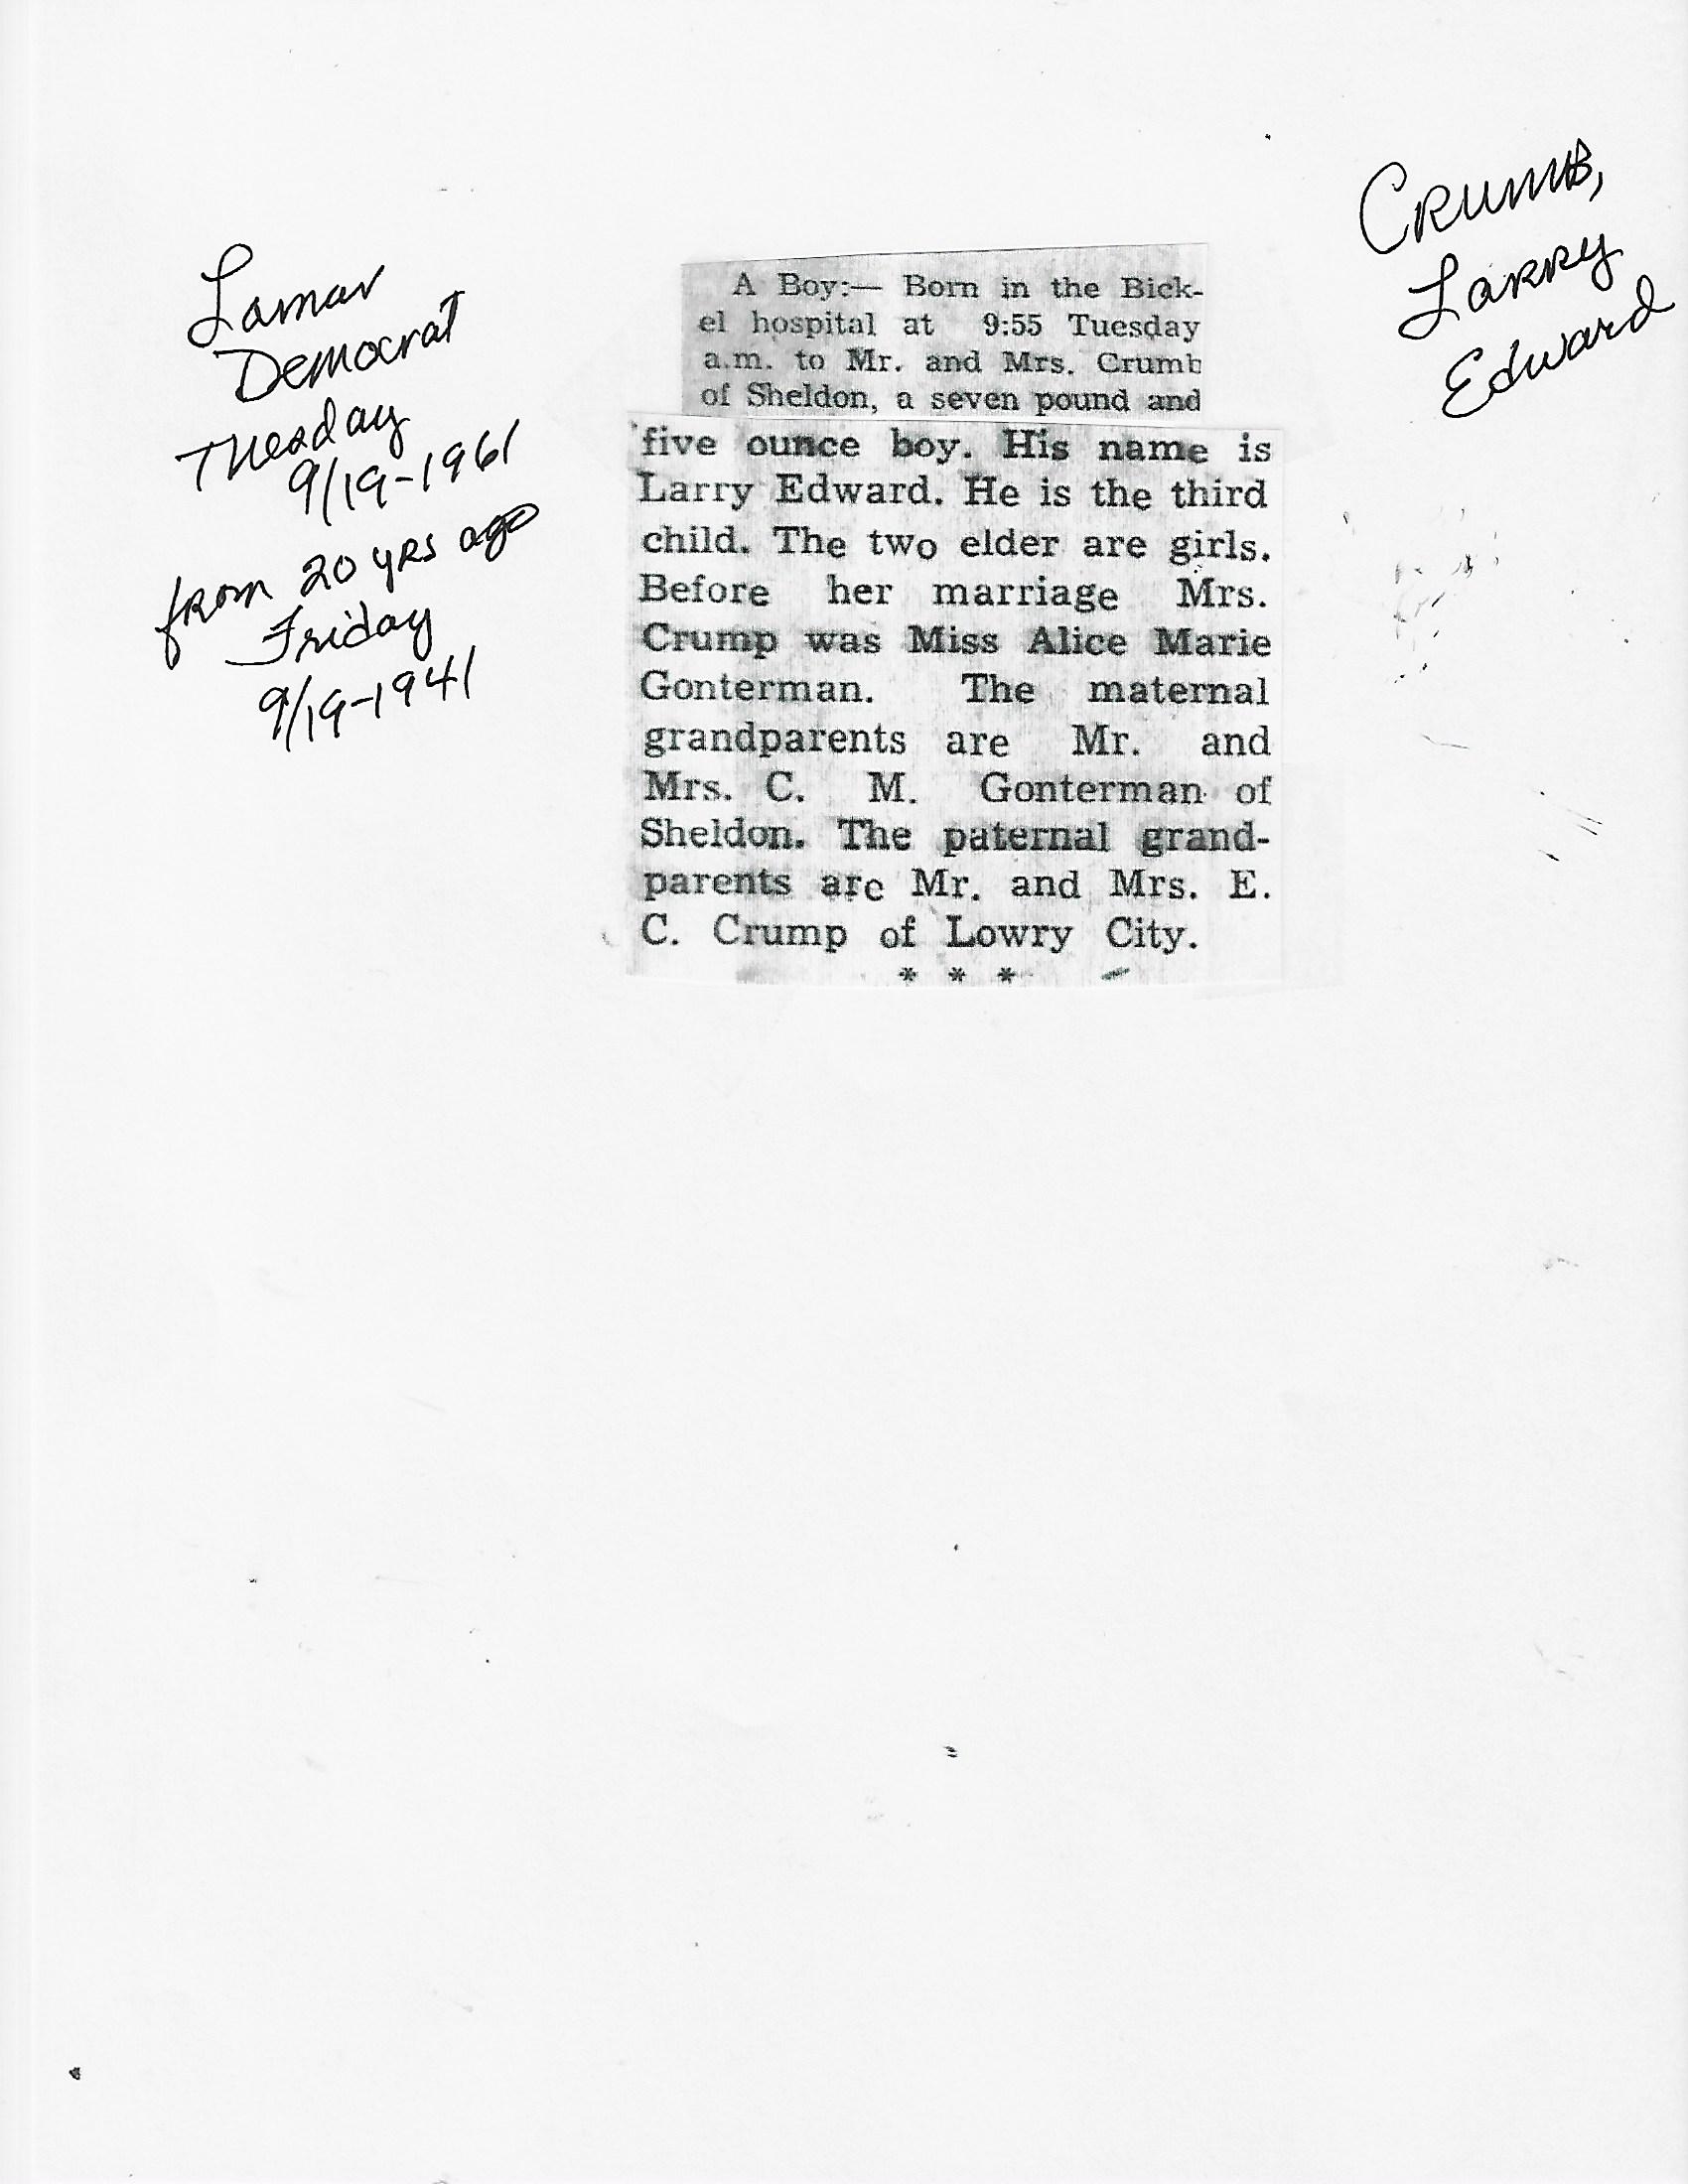 Lamar
Democrat
Tuesday
9/19-1961
from 20 yrs ago
Friday
9/19-1941
Crumb,
Larry
Edward
A Boy:— Born in the Bick-
el hospital at 9:55 Tuesday
a.m. to Mr. and Mrs. Crumb
of Sheldon, a seven pound and
five ounce boy. His name is
Larry Edward. He is the third
child. The two elder are girls.
Before her marriage Mrs.
Crump was Miss Alice Marie
Gonterman. The maternal
grandparents are Mr. and
Mrs. C. M. Gonterman of
Sheldon. The paternal grand-
parents are Mr. and Mrs. E.
C. Crump of Lowry City.
* * *